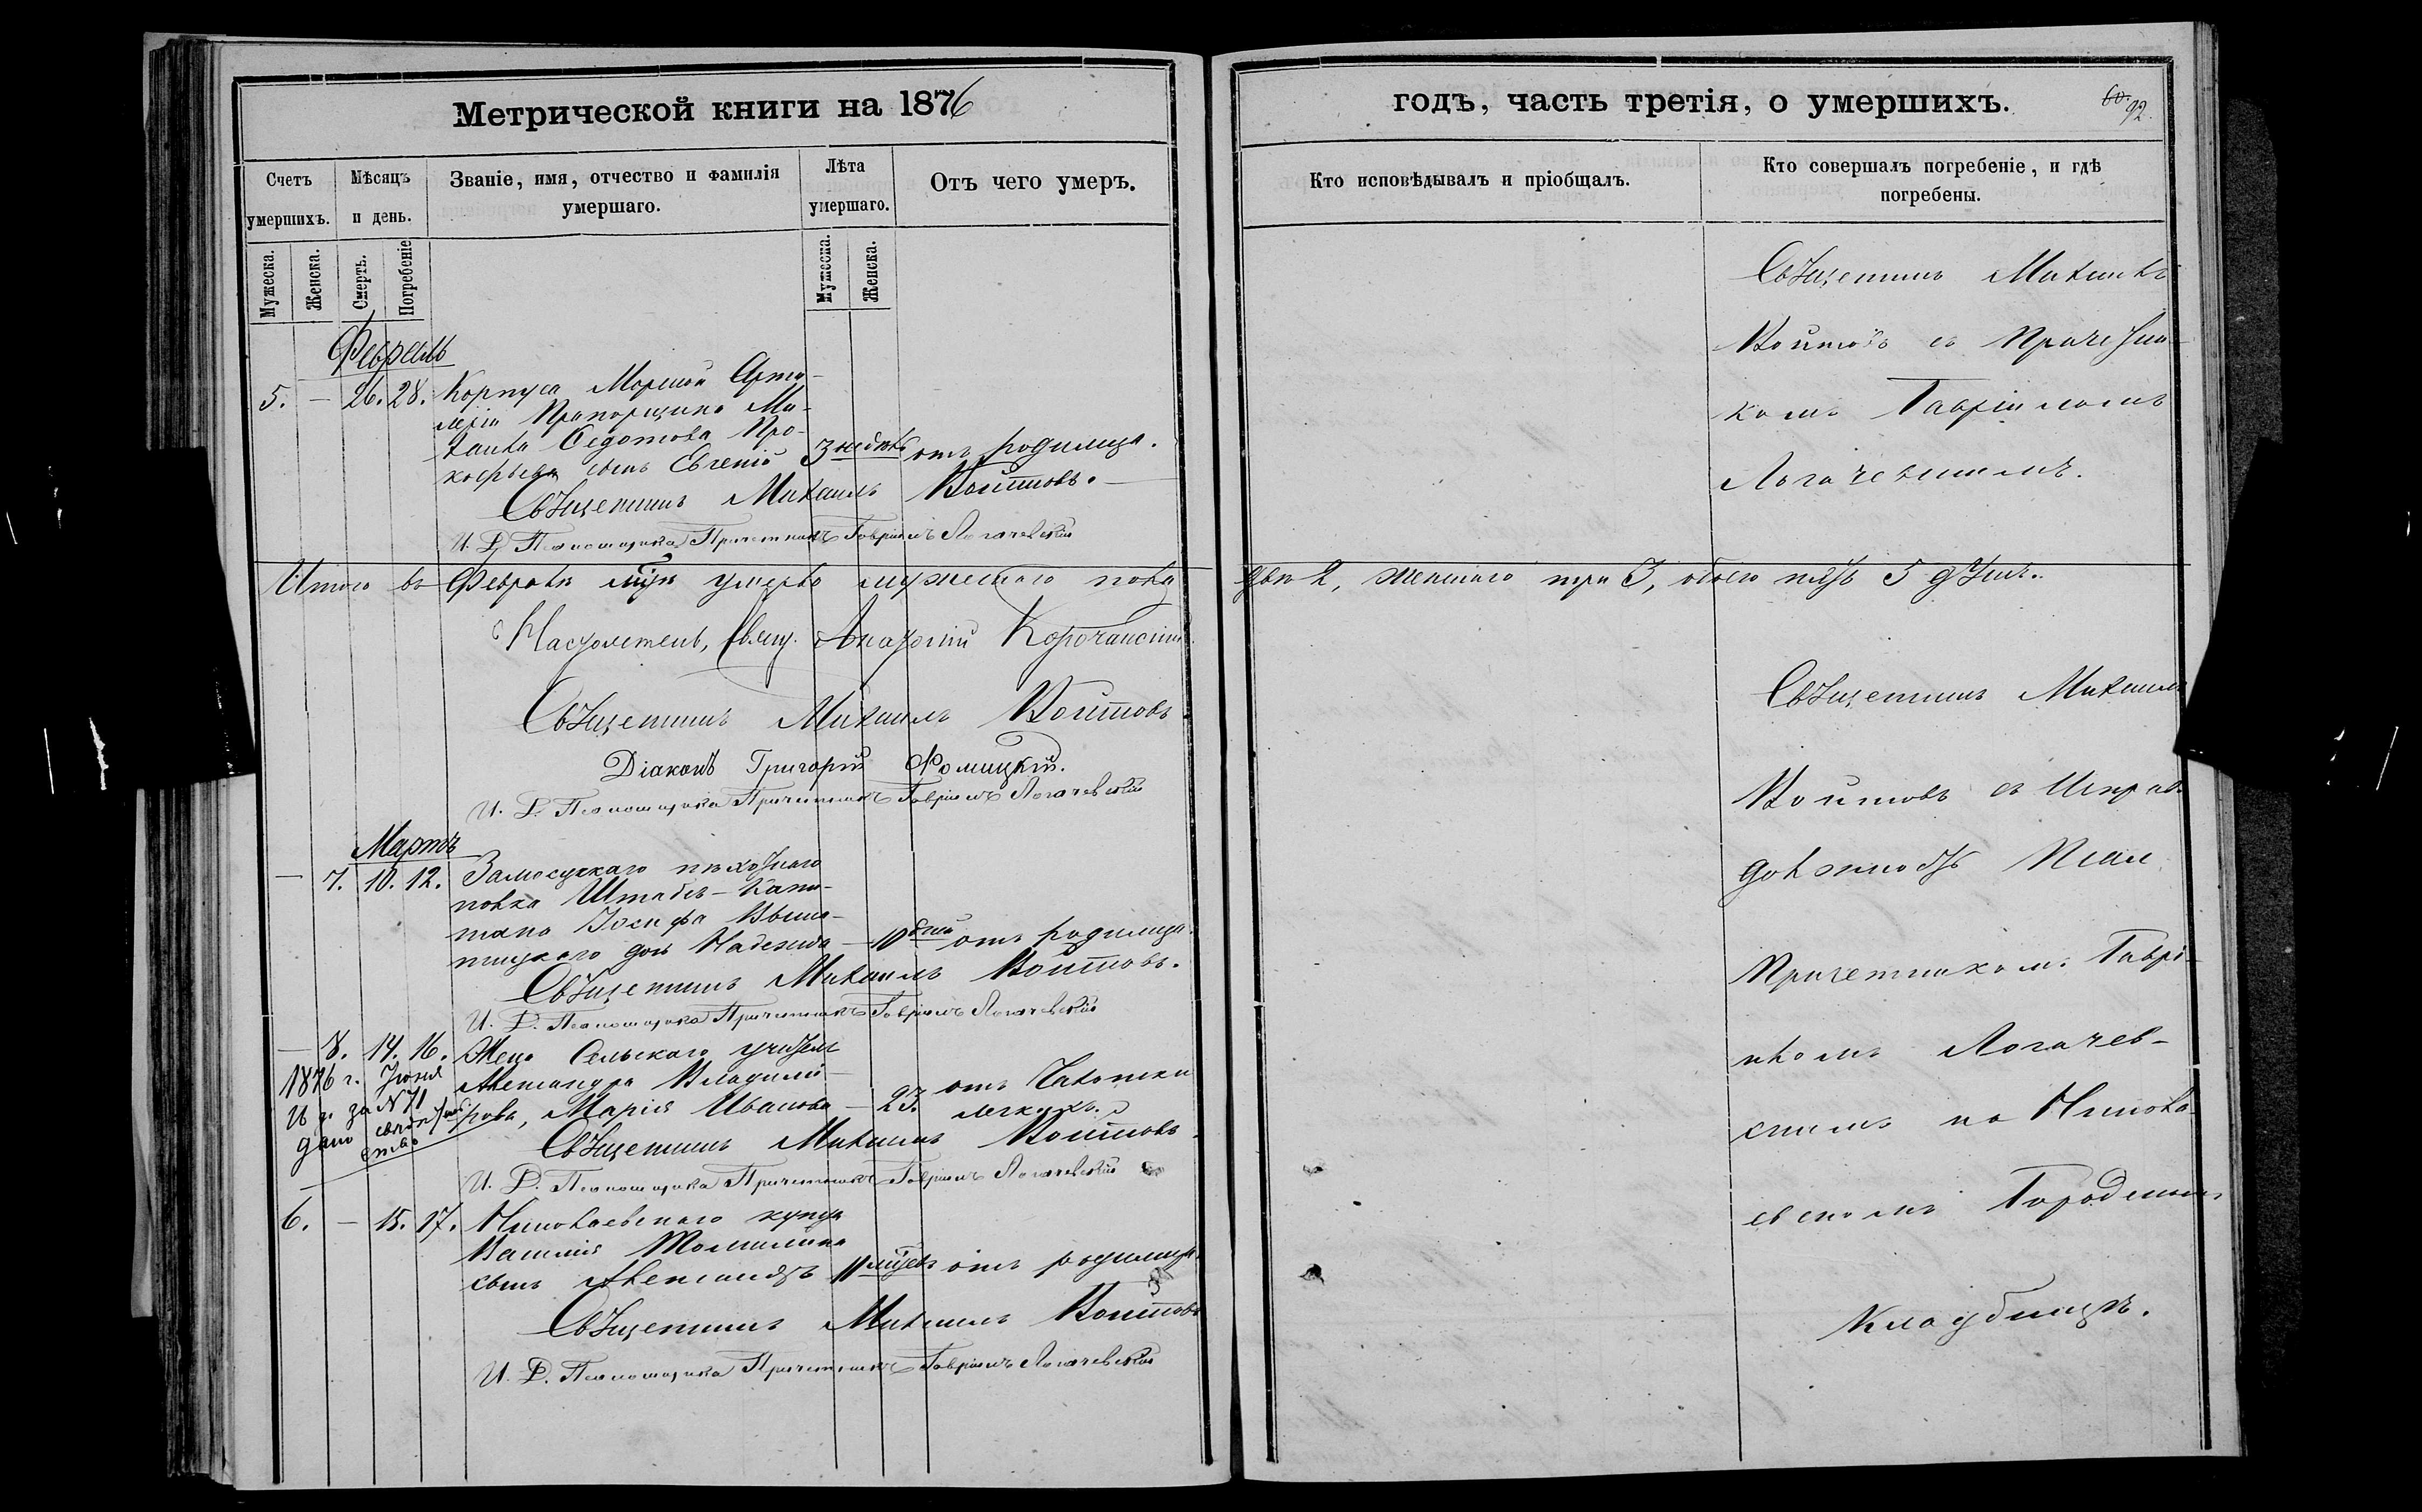 Метрической книги на 1876
Счетъ умершихъ.
Мѣсяцъ и день.
Званіе, имя, отчество и фамилія умершаго.
Лѣта умершаго.
Отъ чего умеръ.
Мужеска.
Женска.
Смерть.
Погребеніе
Мужеска.
Женска.
Февраль
5. — 26. 28. Корпуса Морской Арти-
леріи Прапорщика Ми-
хаила Федотова Про-
кофьева сынъ Евгеній 3 недѣль отъ родимца.
Священникъ Михаилъ Войтовъ.
И. Д. Псаломщика Причетникъ Гавріилъ Логачевскій
Итого въ Февралѣ м̃цѣ умерло мужескаго пола
Настоятель, Свящ. Анатолій Корочанскій
Священникъ Михаилъ Войтовъ
Діаконъ Григорій Фомицкій.
И. Д. Псаломщика Причетникъ Гавріилъ Логачевскій
Мартъ
— 7. 10. 12. Замосцкаго пѣхотнаго
полка Штабсъ-Капи-
тана Іосифа
дочь Надежда — 10 дней отъ родимца.
Священникъ Михаилъ Войтовъ.
И. Д. Псаломщика Причетникъ Гавріилъ Логачевскій
— 8. 14. 16. Жена Сельскаго учителя
Александра Владимі-
рова, Марія Иванова — 23. отъ Чахотки
легкихъ.
1876 г. Іюня
16 д. за N 71
дано свидѣтель-
ство
Священникъ Михаилъ Войтовъ.
И. Д. Псаломщика Причетникъ Гавріилъ Логачевскій
6. — 15. 17. Николаевскаго купца
Василія Томилина
сынъ Александръ 11 м̃цевъ отъ родимца.
Священникъ Михаилъ Войтовъ
И. Д. Псаломщика Причетникъ Гавріилъ Логачевскій
годъ, часть третія, о умершихъ.
60.
92.
Кто исповѣдывалъ и пріобщалъ.
Кто совершалъ погребеніе, и гдѣ погребены.
Священникъ Михаилъ
Войтовъ съ Причетни-
комъ Гавріиломъ
Логачевскимъ.
два 2, женскаго три 3, обоего пола 5 душъ.
Священникъ Михаилъ
Войтовъ съ Исправ.
должность Псал.
Причетникомъ Гаврі-
иломъ Логачев-
скимъ на Никола-
евскомъ Городскомъ
Кладбищѣ.